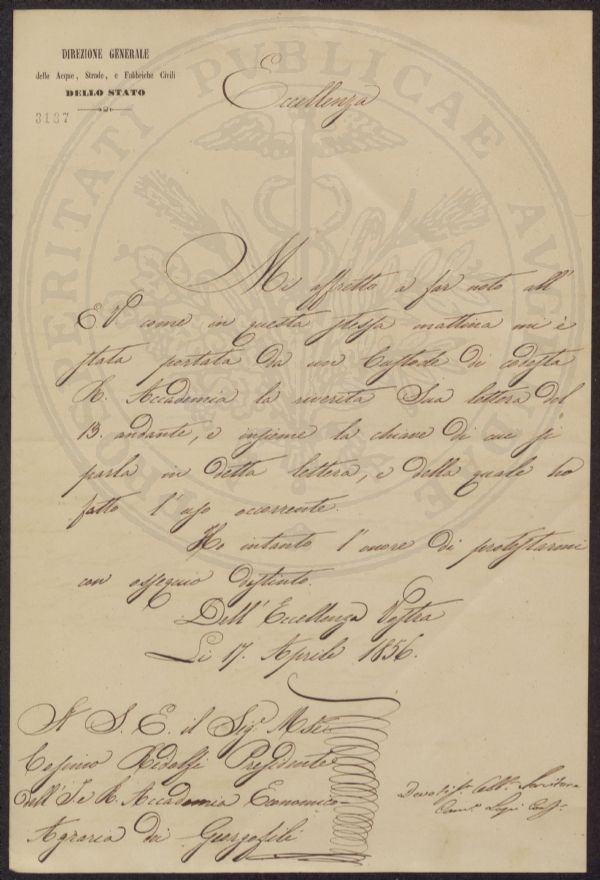 DIREZIONE GENERALE
delle Acque, Strade, e Fabbriche Civili
DELLO STATO
3187
Eccellenza
Mi affretto a far noto all'
E V come in questa stessa mattina mi è
stata portata da un Custode di codesta
R. Accademia la riverita Sua lettera del
13. andante, e insieme la chiave di cui si
parla in detta lettera, e della quale ho
fatto l'uso occorrente.
Ho intanto l'onore di protestarmi
con ossequio distinto.
Dell'Eccellenza Vostra
Li 17. Aprile 1856.
A S. E. il Sigr Mse
Cosimo Ridolfi Presidente
dell'I e R. Accademia Economico-
Agraria dei Georgofili
PROSPERITATI PUBLICAE AUGENDAE